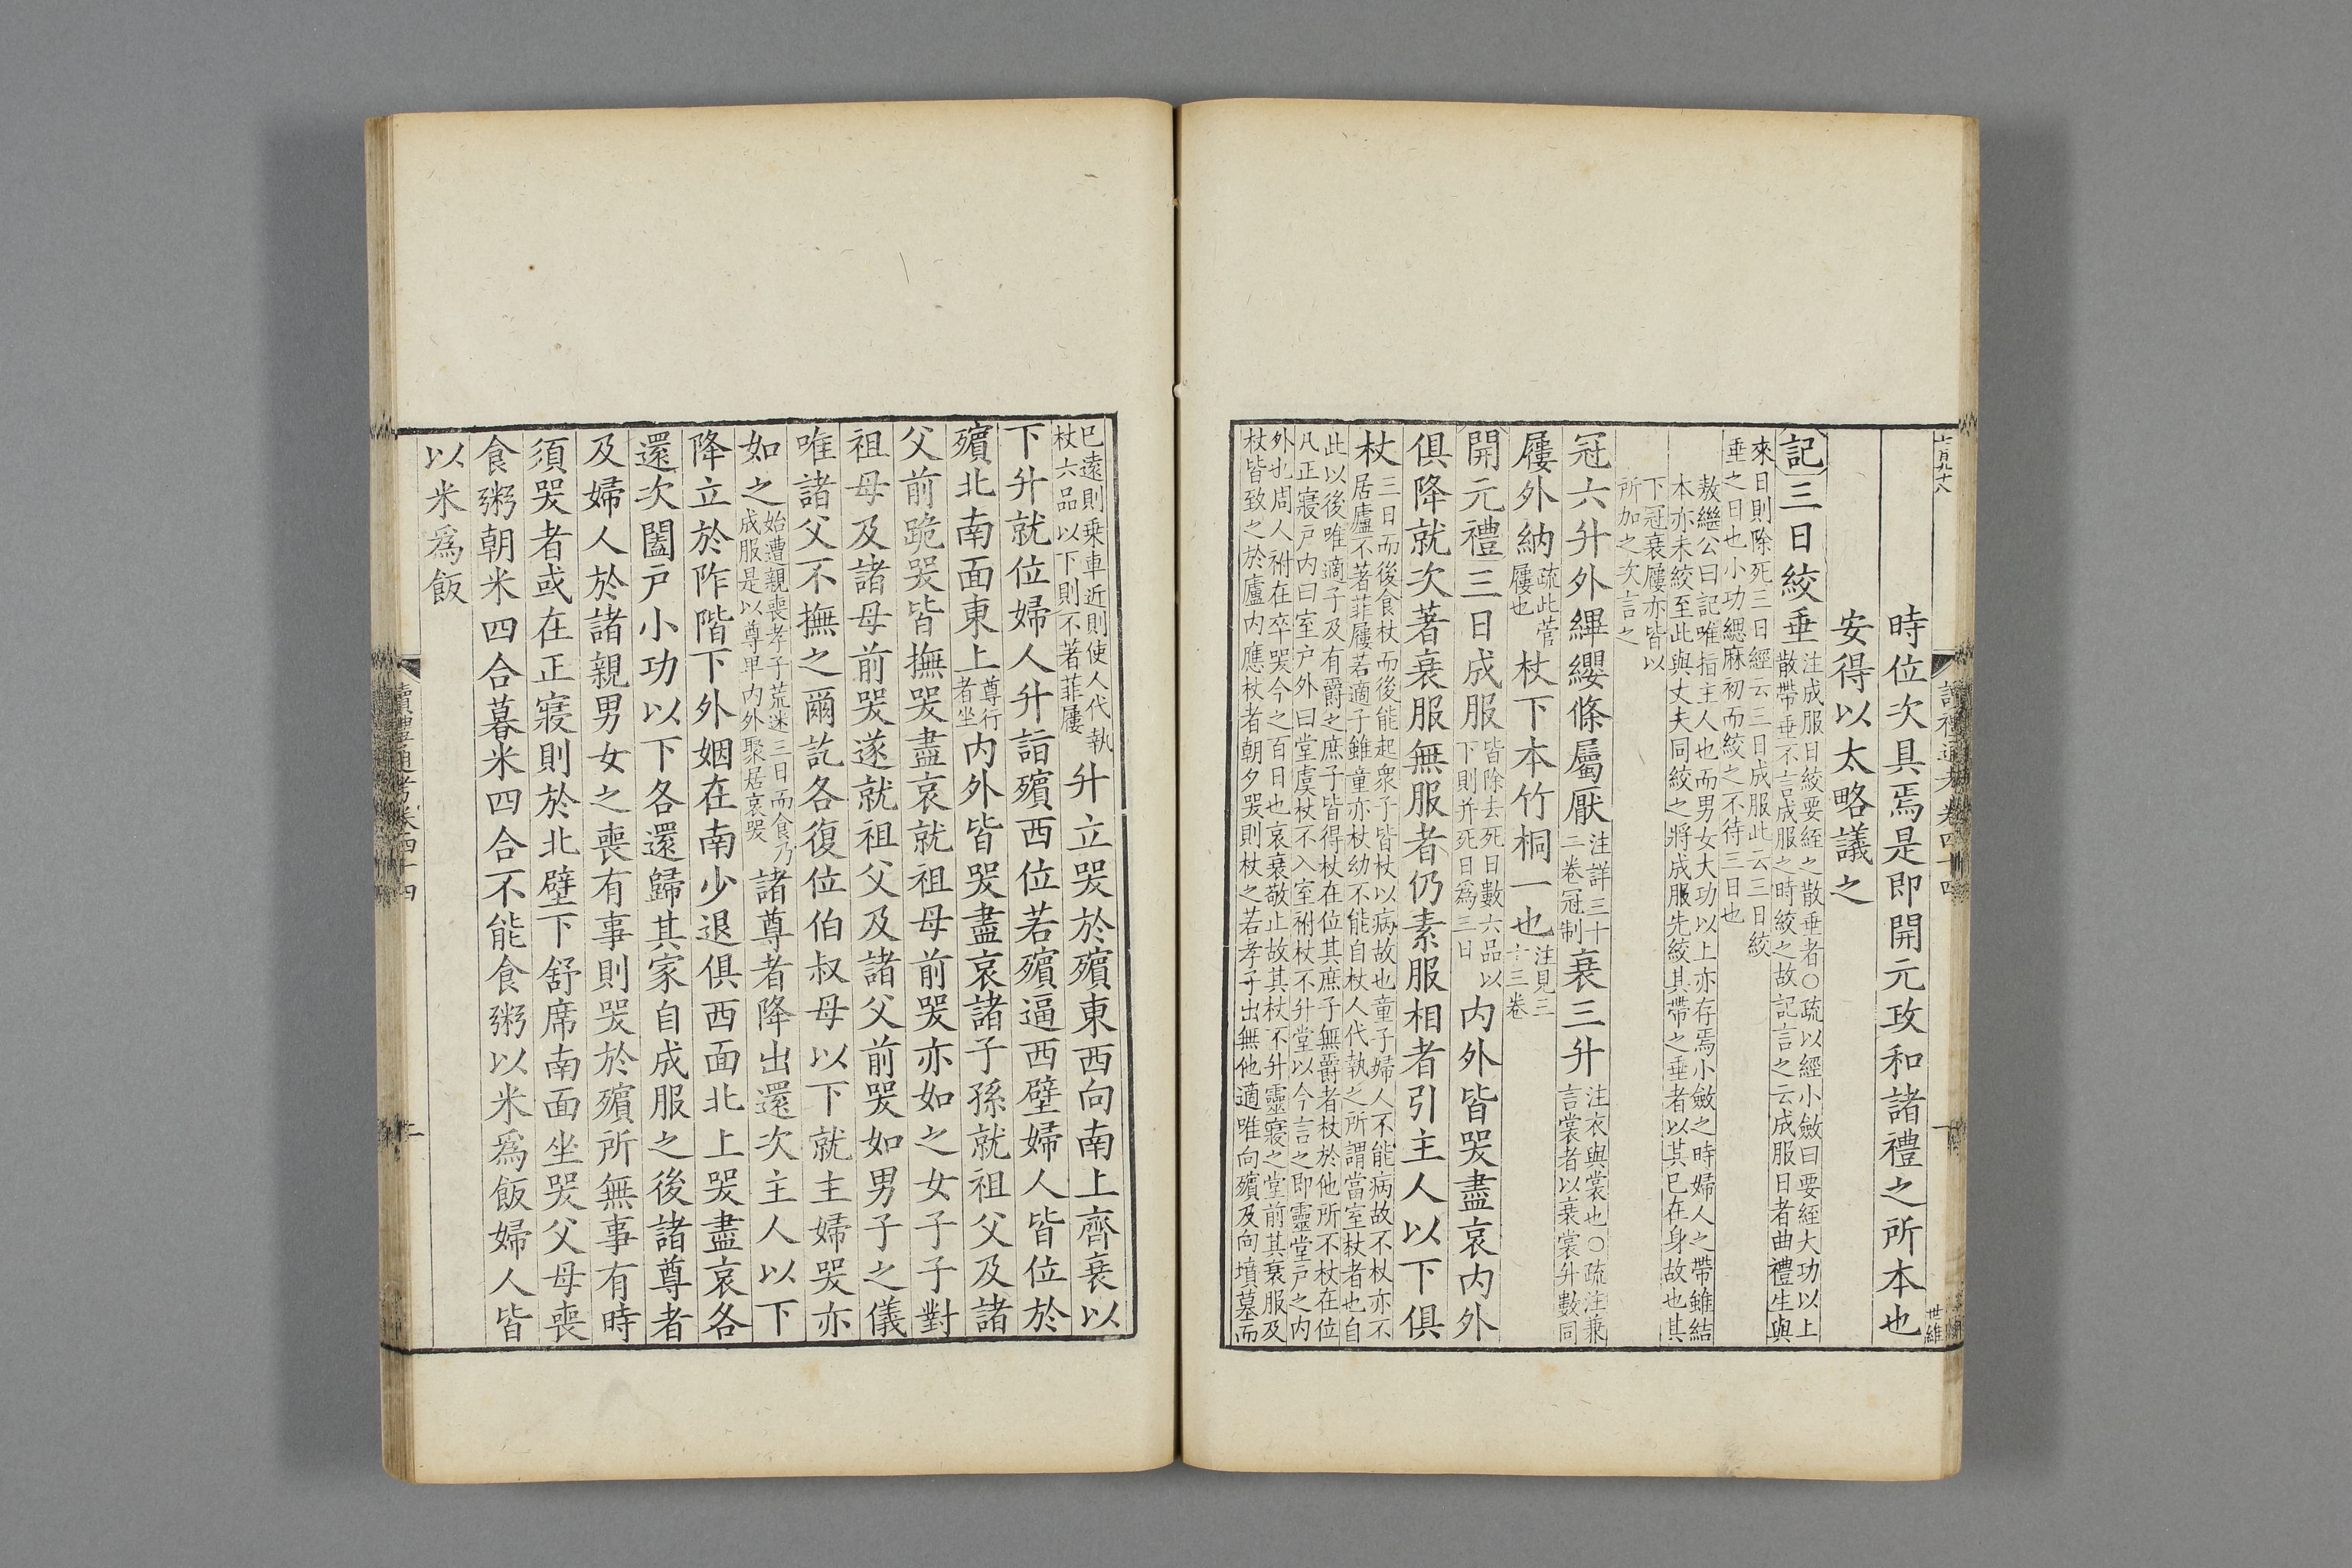 時位次具焉是即開元政和諸禮之所本也
安得以太略議之
記三日絞垂注成服日絞要絰之散垂者○疏以經小斂曰要絰大功以上
散帶垂不言成服之時絞之故記言之云成服日者曲禮生與
來日則除死三日經云三日成服此云三日絞
垂之日也小功緦麻初而絞之不待三日也
敖繼公曰記唯指主人也而男女大功以上亦存焉小斂之時婦人之帶雖結
本亦未絞至此與丈夫同絞之將成服先絞其帶之垂者以其已在身故也其
下冠衰屨亦皆以
所加之次言之
冠六升外縪纓條屬厭注詳三十
二卷冠制
衰三升注衣與裳也○疏注兼
言裳者以衰裳升數同
屨外納疏此菅
屨也
杖下本竹桐一也注見三
十三卷
開元禮三日成服皆除去死日數六品以
下則并死日爲三日
内外皆哭盡哀内外
俱降就次著衰服無服者仍素服相者引主人以下俱
杖三日而後食杖而後能起衆子皆杖以病故也童子婦人不能病故不杖亦不
居廬不著菲屨若適子雖童亦杖幼不能自杖人代執之所謂當室杖者也自
此以後唯適子及有爵之庶子皆得杖在位其庶子無爵者杖於他所不杖在位
凡正寢戶内曰室戶外曰堂虞杖不入室祔杖不升堂以今言之即靈堂戶之内
外也周人祔在卒哭今之百日也哀衰敬止故其杖不升靈寢之堂前其衰服及
杖皆致之於廬内應杖者朝夕哭則杖之若孝子出無他適唯向殯及向墳墓而
已遠則乗車近則使人代執
杖六品以下則不著菲屨
升立哭於殯東西向南上齊衰以
下升就位婦人升詣殯西位若殯逼西壁婦人皆位於
殯北南面東上尊行
者坐
内外皆哭盡哀諸子孫就祖父及諸
父前跪哭皆撫哭盡哀就祖母前哭亦如之女子子對
祖母及諸母前哭遂就祖父及諸父前哭如男子之儀
唯諸父不撫之爾訖各復位伯叔母以下就主婦哭亦
如之始遭親喪孝子荒迷三日而食乃
成服是以尊卑内外聚居哀哭
諸尊者降出還次主人以下
降立於阼階下外姻在南少退俱西面北上哭盡哀各
還次闔戸小功以下各還歸其家自成服之後諸尊者
及婦人於諸親男女之喪有事則哭於殯所無事有時
須哭者或在正寢則於北壁下舒席南面坐哭父母喪
食粥朝米四合暮米四合不能食粥以米爲飯婦人皆
以米爲飯